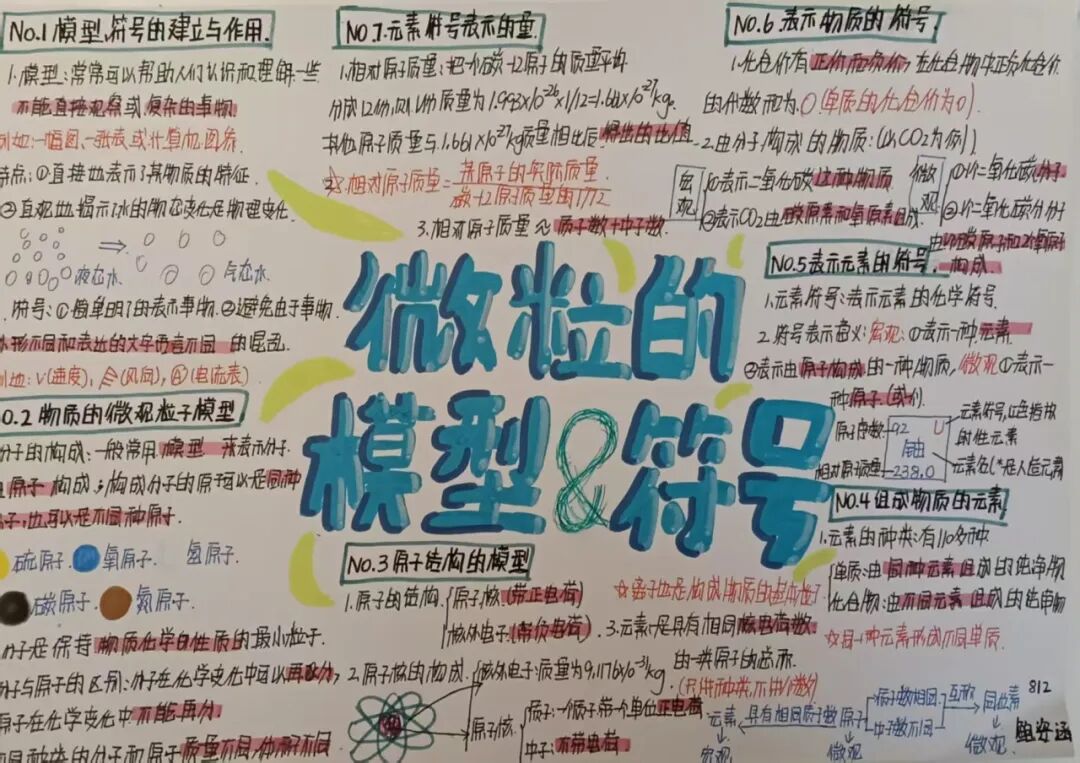 NO.1模型,符号的建立与作用.
1.模型:常常可以帮助人们认识和理解一些
不能直接观察或复杂的事物.
例如:一幅图、一张表或计算机图象
特点:①直接地表示了某物质的特征.
②直观地揭示了水的物态变化是物理变化.
液态水
气态水
符号:①简单明了的表示事物.②避免由于事物
外形不同和表达的文字语言不同的混乱.
例如:V(速度),(风向),Ⓐ(电流表)
NO.2物质的微观粒子模型
分子的构成:一般常用模型来表示分子.
由原子构成;构成分子的原子可以是同种
原子,也可以是不同种原子.
硫原子.氧原子.氢原子.
碳原子.氮原子.
分子是保持物质化学性质的最小粒子.
分子与原子的区别:分子在化学变化中可以再分,
原子在化学变化中不能再分.
不同种类的分子和原子质量不同,体积不同
NO.7.元素符号表示的量
1.相对原子质量:把一个碳-12原子的质量平均
分成12份,则1份质量为1.993×10⁻²⁶×1/12=1.661×10⁻²⁷kg.
其他原子质量与1.661×10⁻²⁷kg质量相比后得出的比值
2.相对原子质量=某原子的实际质量
碳-12原子质量的1/12
3.相对原子质量≈质子数+中子数.
微粒的
模型&符号
NO.3原子结构的模型
1.原子的结构.
原子核.(带正电荷)
核外电子.(带负电荷)
2.原子核的构成.
核外电子:质量为9.1176×10⁻³¹kg
原子核.
质子:一个质子带一个单位正电荷
中子:不带电荷
☆离子也是构成物质的基本粒子
3.元素是具有相同核电荷数
的一类原子的总称.
(只讲种类,不讲个数)
NO.6.表示物质的符号
1.化合价有正价和负价,在化合物中正负化合价
的代数和为0(单质的化合价为0).
2.由分子构成的物质:(以CO2为例).
宏观
①表示二氧化碳这种物质
②表示CO2由碳原素和氧原素组成.
微观
①1个二氧化碳分子
②1个二氧化碳分子
由1个碳原子和2个氧原子
构成.
NO.5表示元素的符号.
1.元素符号:表示元素的化学符号.
2.符号表示意义:宏观:①表示一种元素
②表示由原子构成的一种物质,微观①表示一
种原子(或1个).
原子序数:92 U
铀
相对原子质量 238.0
元素符号,红色指放
射性元素
元素名(*是人造元素
NO.4组成物质的元素
1.元素的种类:有110多种
单质:由同种元素组成的纯净物
化合物:由不同元素组成的纯净物
☆同一种元素形成不同单质.
元素 具有相同质子数 原子 质子数相同 中子数不同 互称 同位素
宏观 微观 微观
812